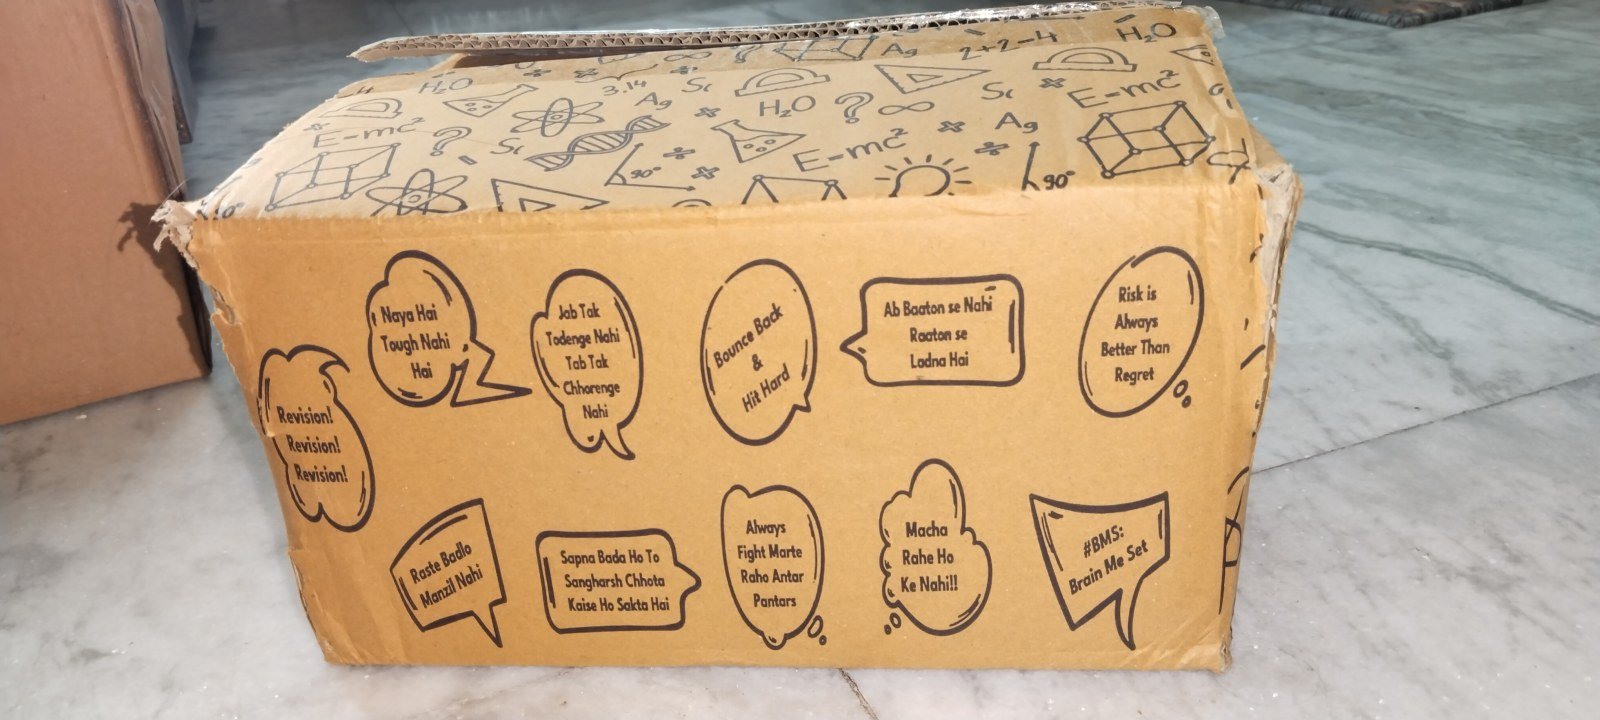 Ag
2+2=4
H₂O
H₂O
3.14
Ag
Sc
H₂O
Sc
E=mc²
E=mc²
Sc
90°
E=mc²
Ag
90°
Revision!
Revision!
Revision!
Naya Hai
Tough Nahi
Hai
Jab Tak
Todenge Nahi
Tab Tak
Chhorenge
Nahi
Bounce Back
&
Hit Hard
Ab Baaton se Nahi
Raaton se
Ladna Hai
Risk is
Always
Better Than
Regret
Raste Badlo
Manzil Nahi
Sapna Bada Ho To
Sangharsh Chhota
Kaise Ho Sakta Hai
Always
Fight Marte
Raho Antar
Pantars
Macha
Rahe Ho
Ke Nahi!!
#BMS:
Brain Me Set